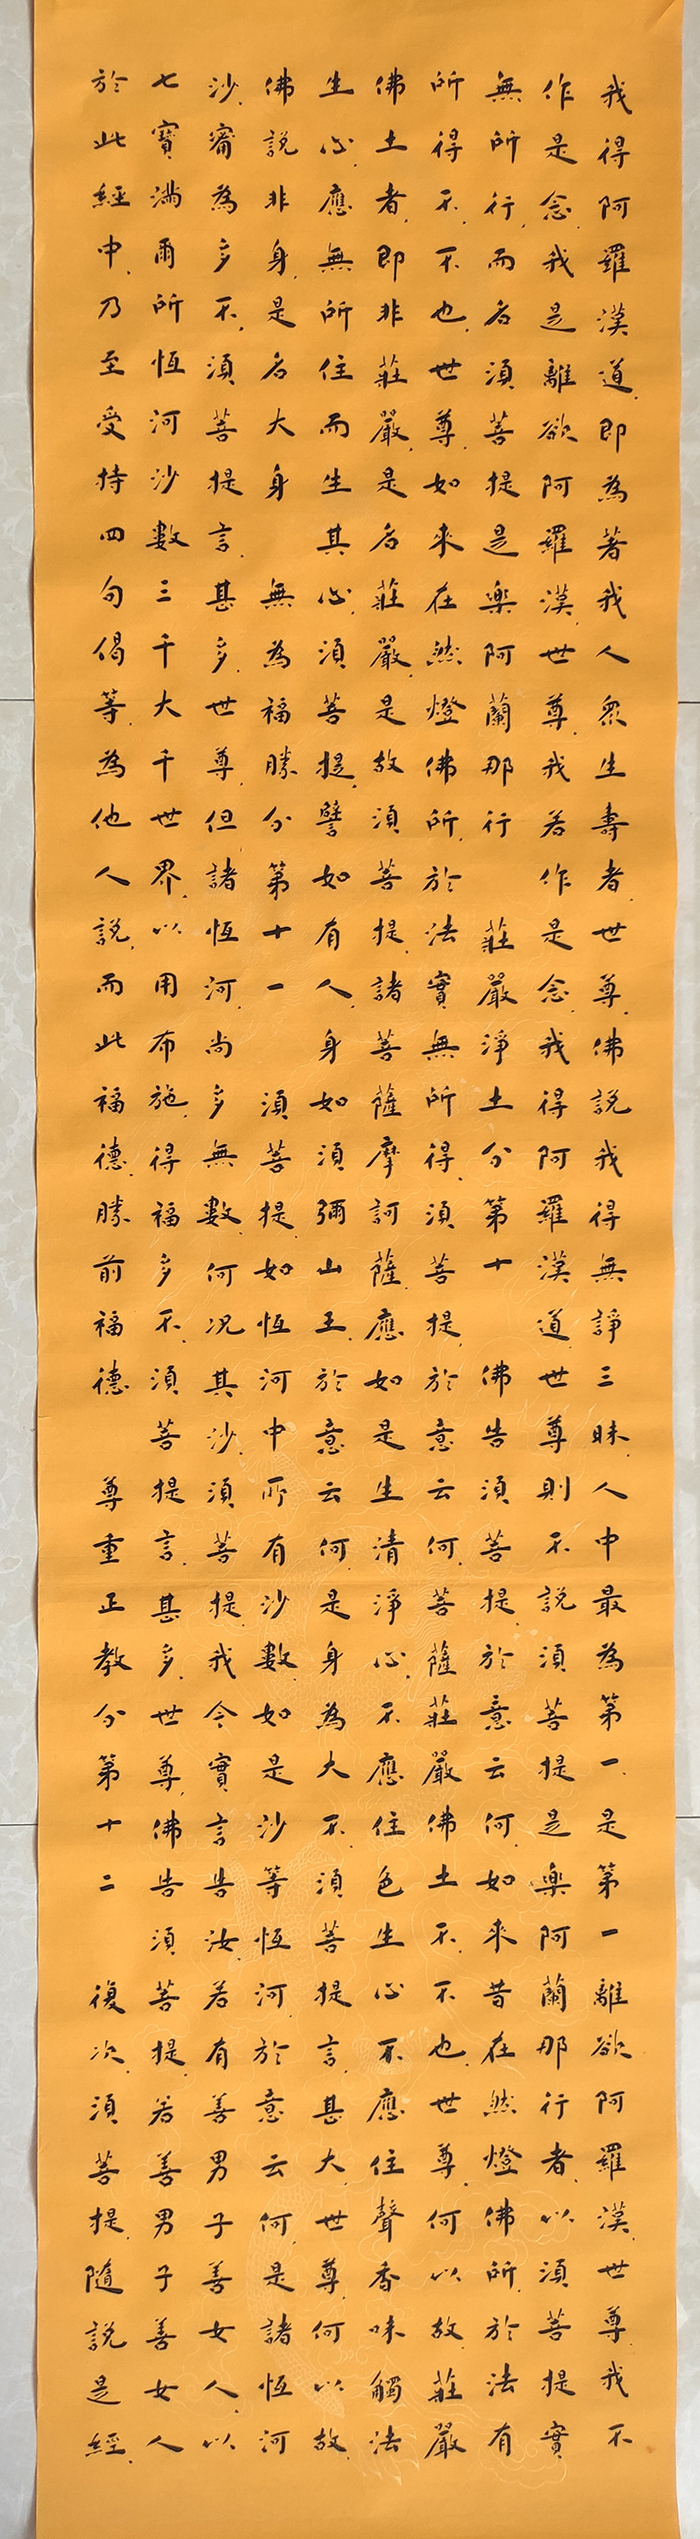 我得阿羅漢道即為著我人眾生壽者世尊佛說我得無諍三昧人中最為第一是第一離欲阿羅漢世尊我不
作是念我是離欲阿羅漢世尊我若作是念我得阿羅漢道世尊則不說須菩提是樂阿蘭那行者以須菩提實
無所行而名須菩提是樂阿蘭那行 莊嚴淨土分第十 佛告須菩提於意云何如來昔在然燈佛所於法有
所得不不也世尊如來在然燈佛所於法實無所得須菩提於意云何菩薩莊嚴佛土不不也世尊何以故莊嚴
佛土者即非莊嚴是名莊嚴是故須菩提諸菩薩摩訶薩應如是生清淨心不應住色生心不應住聲香味觸法
生心應無所住而生其心須菩提譬如有人身如須彌山王於意云何是身為大不須菩提言甚大世尊何以故
佛說非身是名大身 無為福勝分第十一 須菩提如恆河中所有沙數如是沙等恆河於意云何是諸恆河
沙甯為多不須菩提言甚多世尊但諸恆河尚多無數何況其沙須菩提我今實言告汝若有善男子善女人以
七寶滿爾所恆河沙數三千大千世界以用布施得福多不須菩提言甚多世尊佛告須菩提若善男子善女人
於此經中乃至受持四句偈等為他人說而此福德勝前福德 尊重正教分第十二 復次須菩提隨說是經